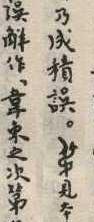 乃成積誤。第見本
誤解作、韋東之次第